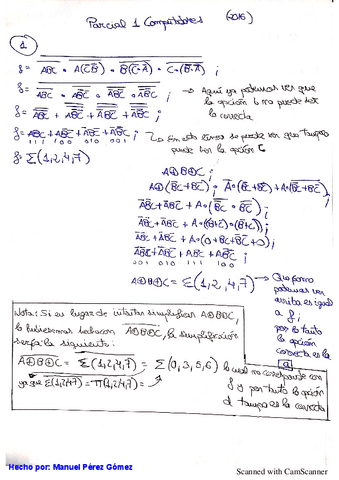 Parcial 1 Computadores (2016)
1
f = ABC • A(C̅B̅) • B̅(C̅•A̅) • C•(B̅•A̅) ;
f = ABC • AB̅C̅ • A̅BC̅ • A̅B̅C ; → Aquí ya podemos ver que
la opción b no puede ser
la correcta
f = ABC + AB̅C̅ + A̅BC̅ + A̅B̅C ;
f = ABC + AB̅C̅ + A̅BC̅ + A̅B̅C ; → Sin esta línea se puede ver que tampoco
111 100 010 001 puede ser la opción C
f = Σ(1,2,4,7)
A⊕B⊕C ;
A⊕(B̅C+BC̅) = A̅•(B̅C+BC̅) + A•(B̅C+BC̅) ;
A̅B̅C + A̅BC̅ + A•(B̅C • BC̅) ;
A̅B̅C + A̅BC̅ + A•((B+C̅)•(B̅+C)) ;
A̅B̅C + A̅BC̅ + A•(0+BC+B̅C̅+0) ;
A̅B̅C + A̅BC̅ + ABC + AB̅C̅ ;
001 010 111 100
A⊕B⊕C = Σ(1,2,4,7) → Que como
podemos ver
arriba es igual
a f ;
por lo tanto
la opción
correcta es la
a
Nota: Si en lugar de intentar simplificar A⊕B⊕C,
lo hubiésemos hecho con A⊕B⊕C, la simplificación
sería la siguiente:
A⊕B⊕C = Σ(1,2,4,7) = Σ(0,3,5,6) lo cual no corresponde con
ya que Σ(1,2,4,7) = Π(1,2,4,7) = f y por tanto la opción
d tampoco es la correcta
Hecho por: Manuel Pérez Gómez
Scanned with CamScanner